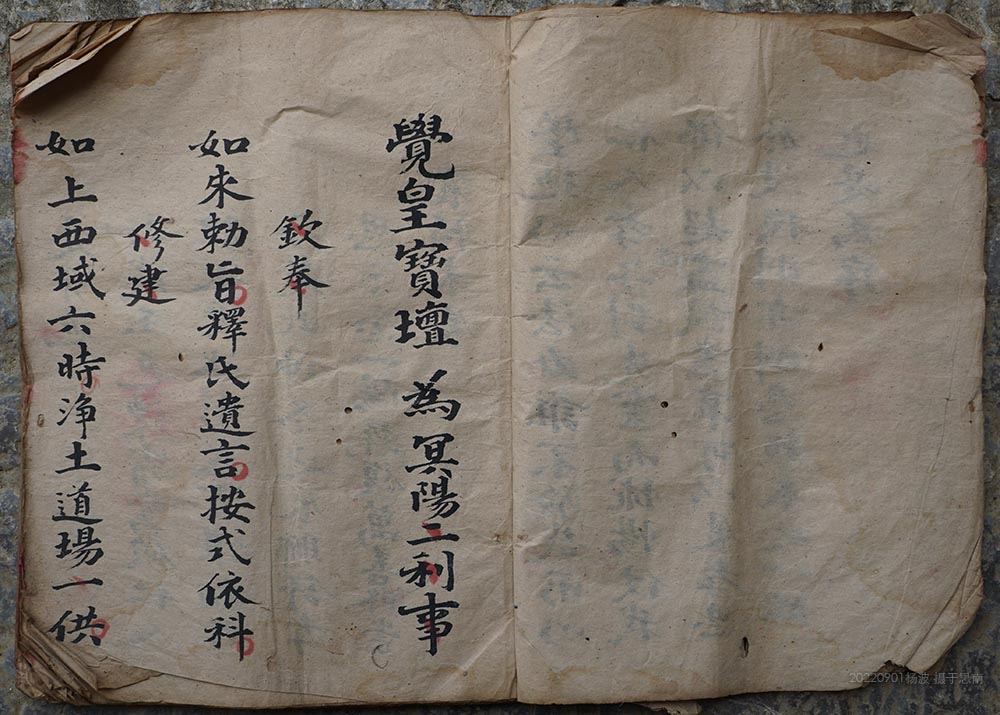 覺皇寶壇 為冥陽二利事
欽奉
如来勅旨釋氏遺言按式依科
修建
如上西域六時浄土道場一供
20220901杨波 摄于思南